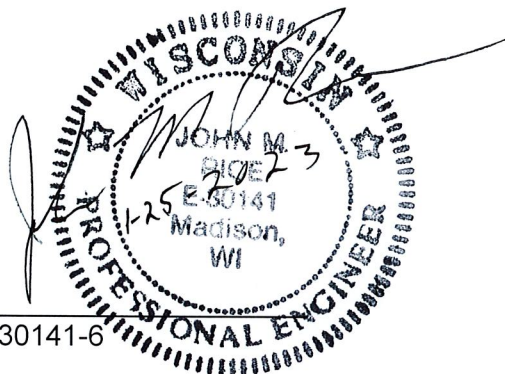 WISCONSIN
JOHN M.
RICE
E-30141
Madison,
WI
1-25-2023
PROFESSIONAL ENGINEER
30141-6